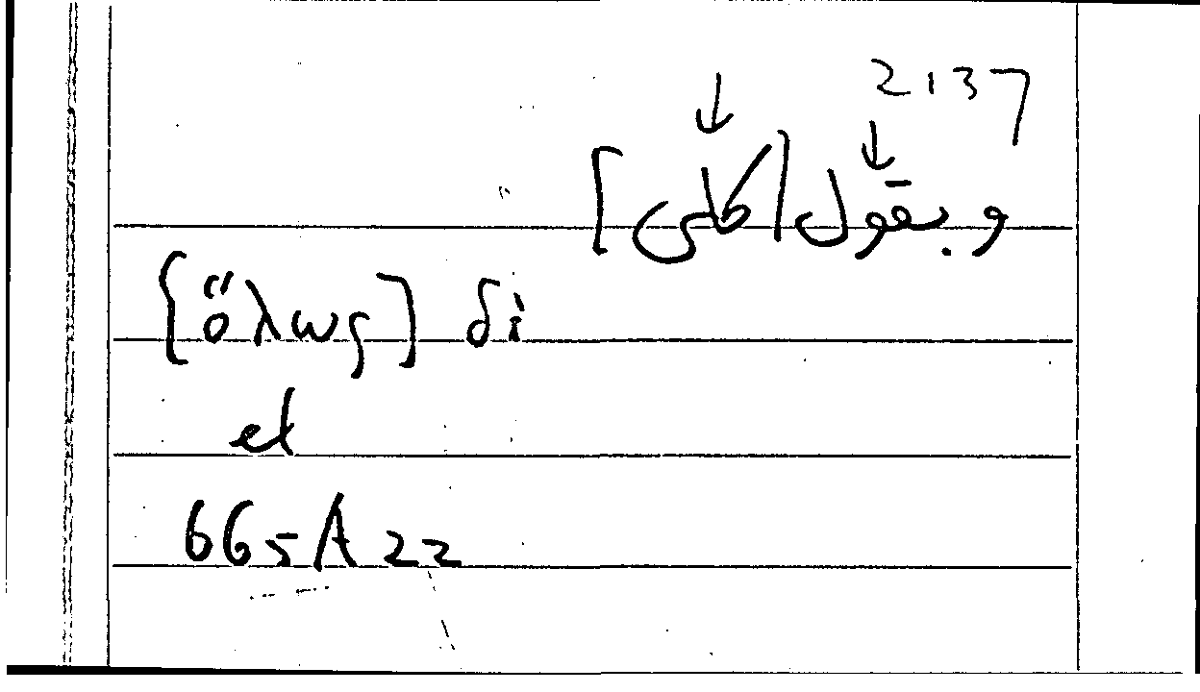 2137
وبقول [كلى]
[ὅλως] δὲ
et
665A22